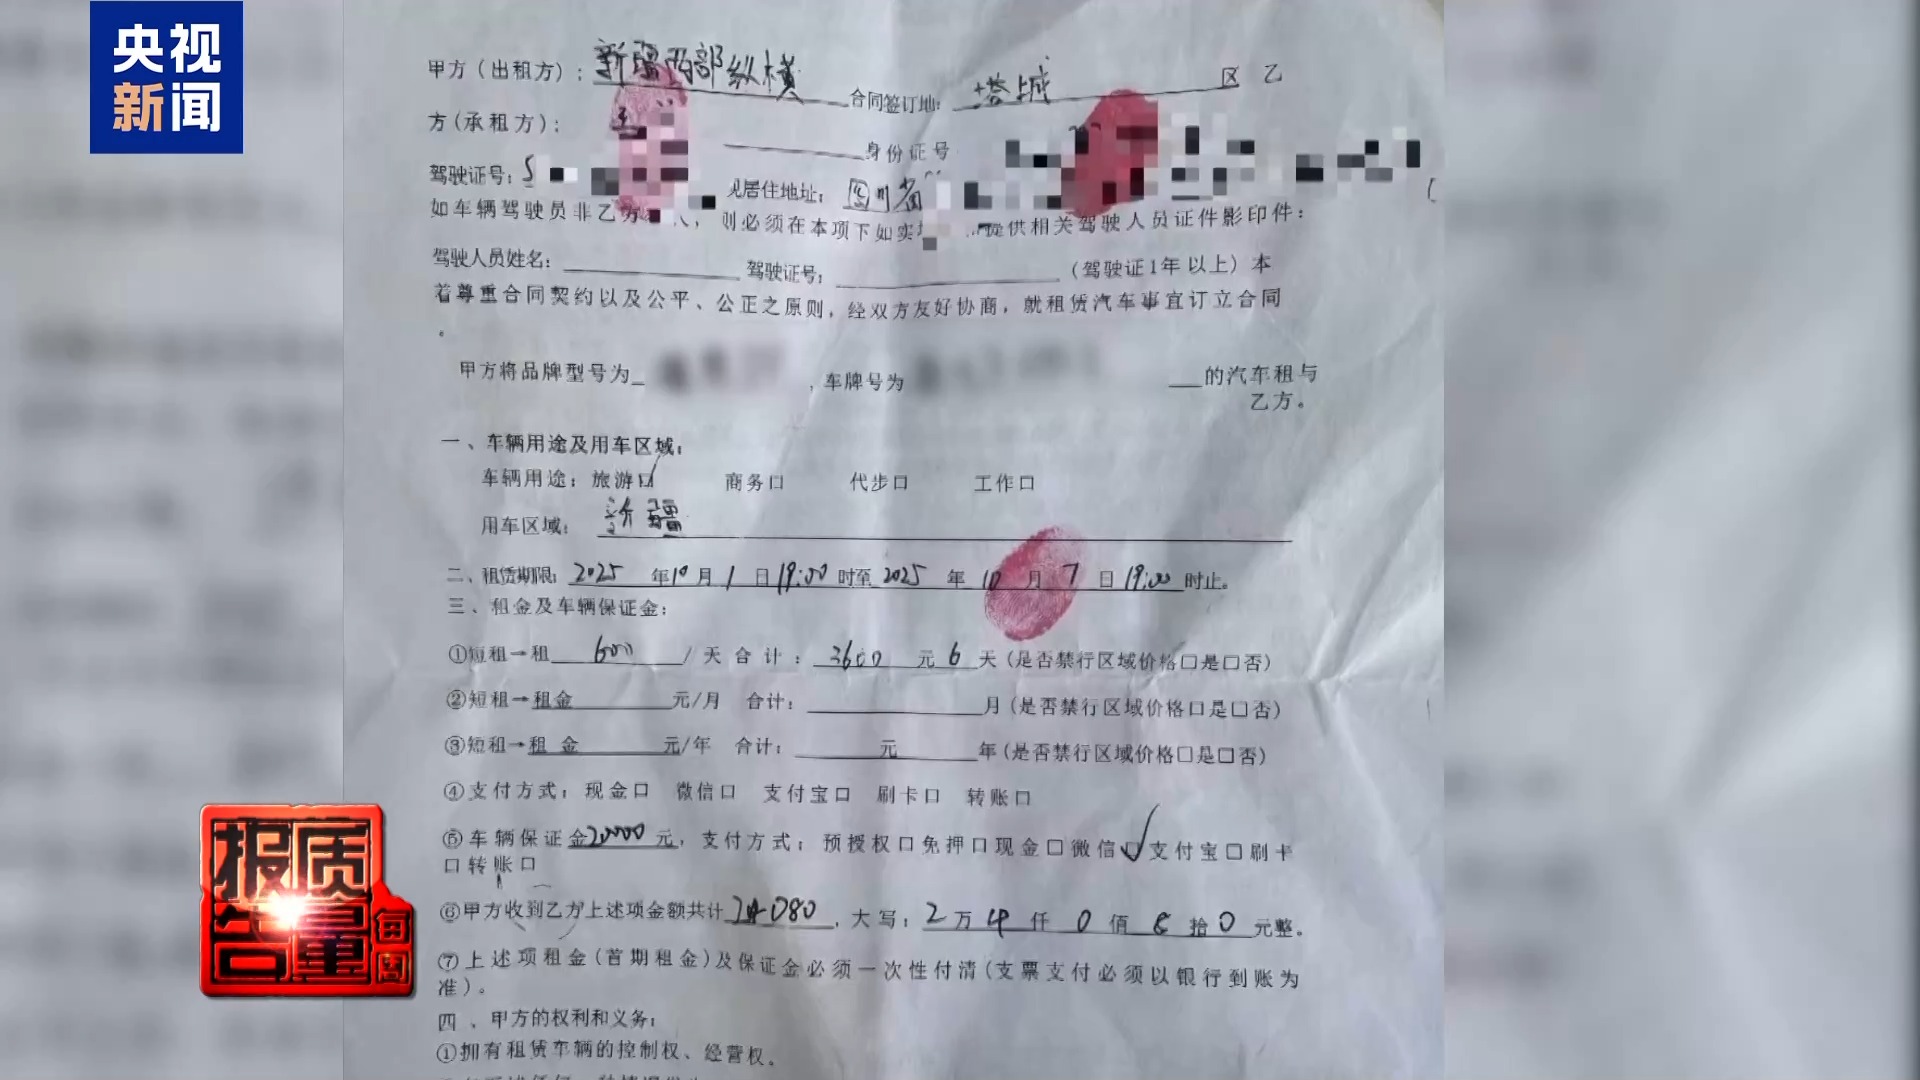 央视
新闻
甲方（出租方）：新疆西部纵横 合同签订地：塔城 区 乙
方（承租方）： 身份证号
驾驶证号：5 见居住地址：四川省
如车辆驾驶员非乙方 人，则必须在本项下如实 提供相关驾驶人员证件影印件：
驾驶人员姓名： 驾驶证号： （驾驶证1年以上）本
着尊重合同契约以及公平、公正之原则，经双方友好协商，就租赁汽车事宜订立合同
。
甲方将品牌型号为 ，车牌号为 的汽车租与
乙方。
一、车辆用途及用车区域：
车辆用途：旅游☑ 商务口 代步口 工作口
用车区域：新疆
二、租赁期限：2025 年10月1日19:00时至2025 年10月7日19:00时止。
三、租金及车辆保证金：
①短租→租 600 /天合计：3600 元6天(是否禁行区域价格口是口否)
②短租→租金 元/月 合计： 月(是否禁行区域价格口是口否)
③短租→租 金 元/年 合计： 元 年(是否禁行区域价格口是口否)
④支付方式：现金口 微信口 支付宝口 刷卡口 转账口
⑤车辆保证金20000元，支付方式：预授权口免押口现金口微信☑支付宝口刷卡
口转账口
⑥甲方收到乙方上述项金额共计24080，大写：2万4仟0佰8拾0元整。
⑦上述项租金(首期租金)及保证金必须一次性付清(支票支付必须以银行到账为
准)。
四、甲方的权利和义务：
①拥有租赁车辆的控制权、经营权。
每周
质量
报告